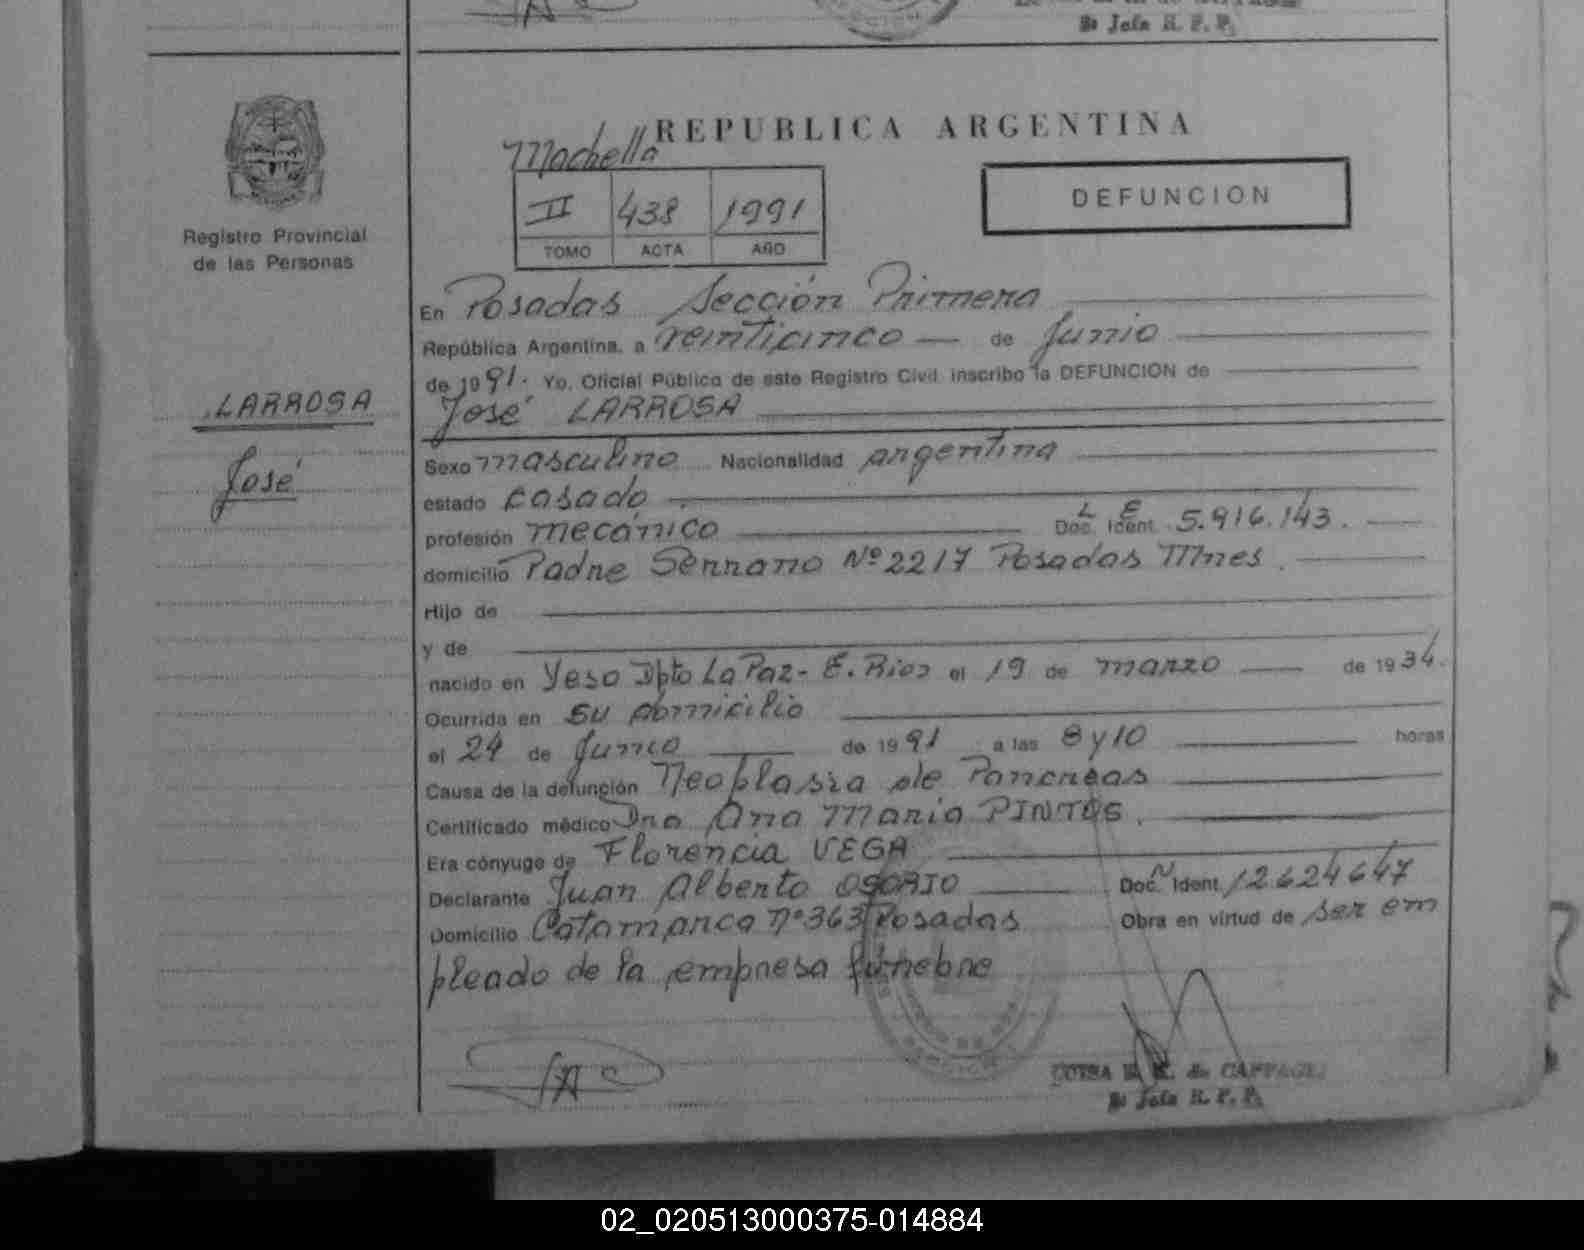 Bº Jefe R. P. P.
REPUBLICA ARGENTINA
DEFUNCION
II 438 1991
TOMO ACTA AÑO
Registro Provincial
de las Personas
LARROSA
José
En Posadas Sección Primera
República Argentina, a veinticinco — de Junio
de 1991. Yo, Oficial Público de este Registro Civil inscribo la DEFUNCION de
José LARROSA
Sexo masculino Nacionalidad argentina
estado casado
profesión mecánico Doc. Ident. L E 5.916.143.
domicilio Padre Serrano Nº 2217 Posadas Mnes.
Hijo de
y de
nacido en Yeso Dpto La Paz - E. Rios el 19 de marzo — de 1934.
Ocurrida en su domicilio
el 24 de Junio — de 1991 a las 8 y 10 horas
Causa de la defunción Neoplasia de Pancreas
Certificado médico Dra Ana Maria PINTOS.
Era cónyuge de Florencia VEGA
Declarante Juan Alberto OSORIO Doc. Ident. 12624647
Domicilio Catamarca nº 363 Posadas Obra en virtud de ser em
pleado de la empresa fúnebre
Bº Jefe R. P. P.
02_020513000375-014884